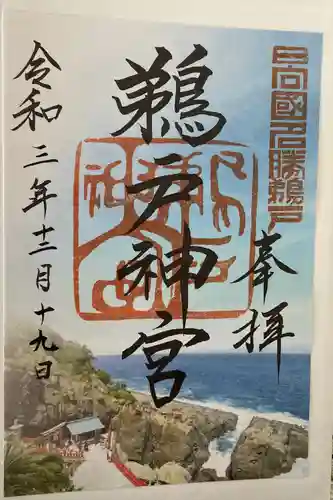 日向國名勝鵜戸
奉拝
鵜戸神宮
令和三年十二月十九日